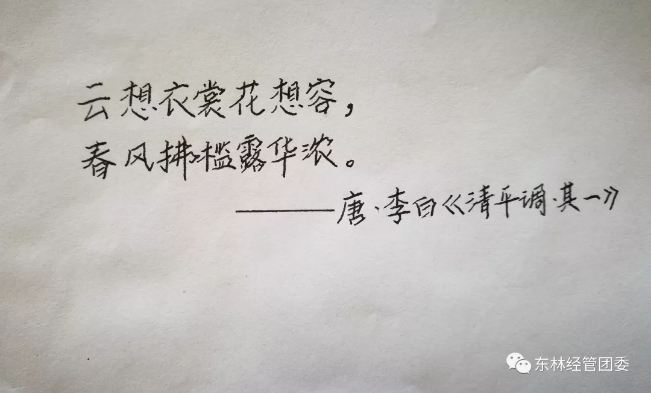 云想衣裳花想容，
春风拂槛露华浓。
——唐·李白《清平调·其一》
东林经管团委